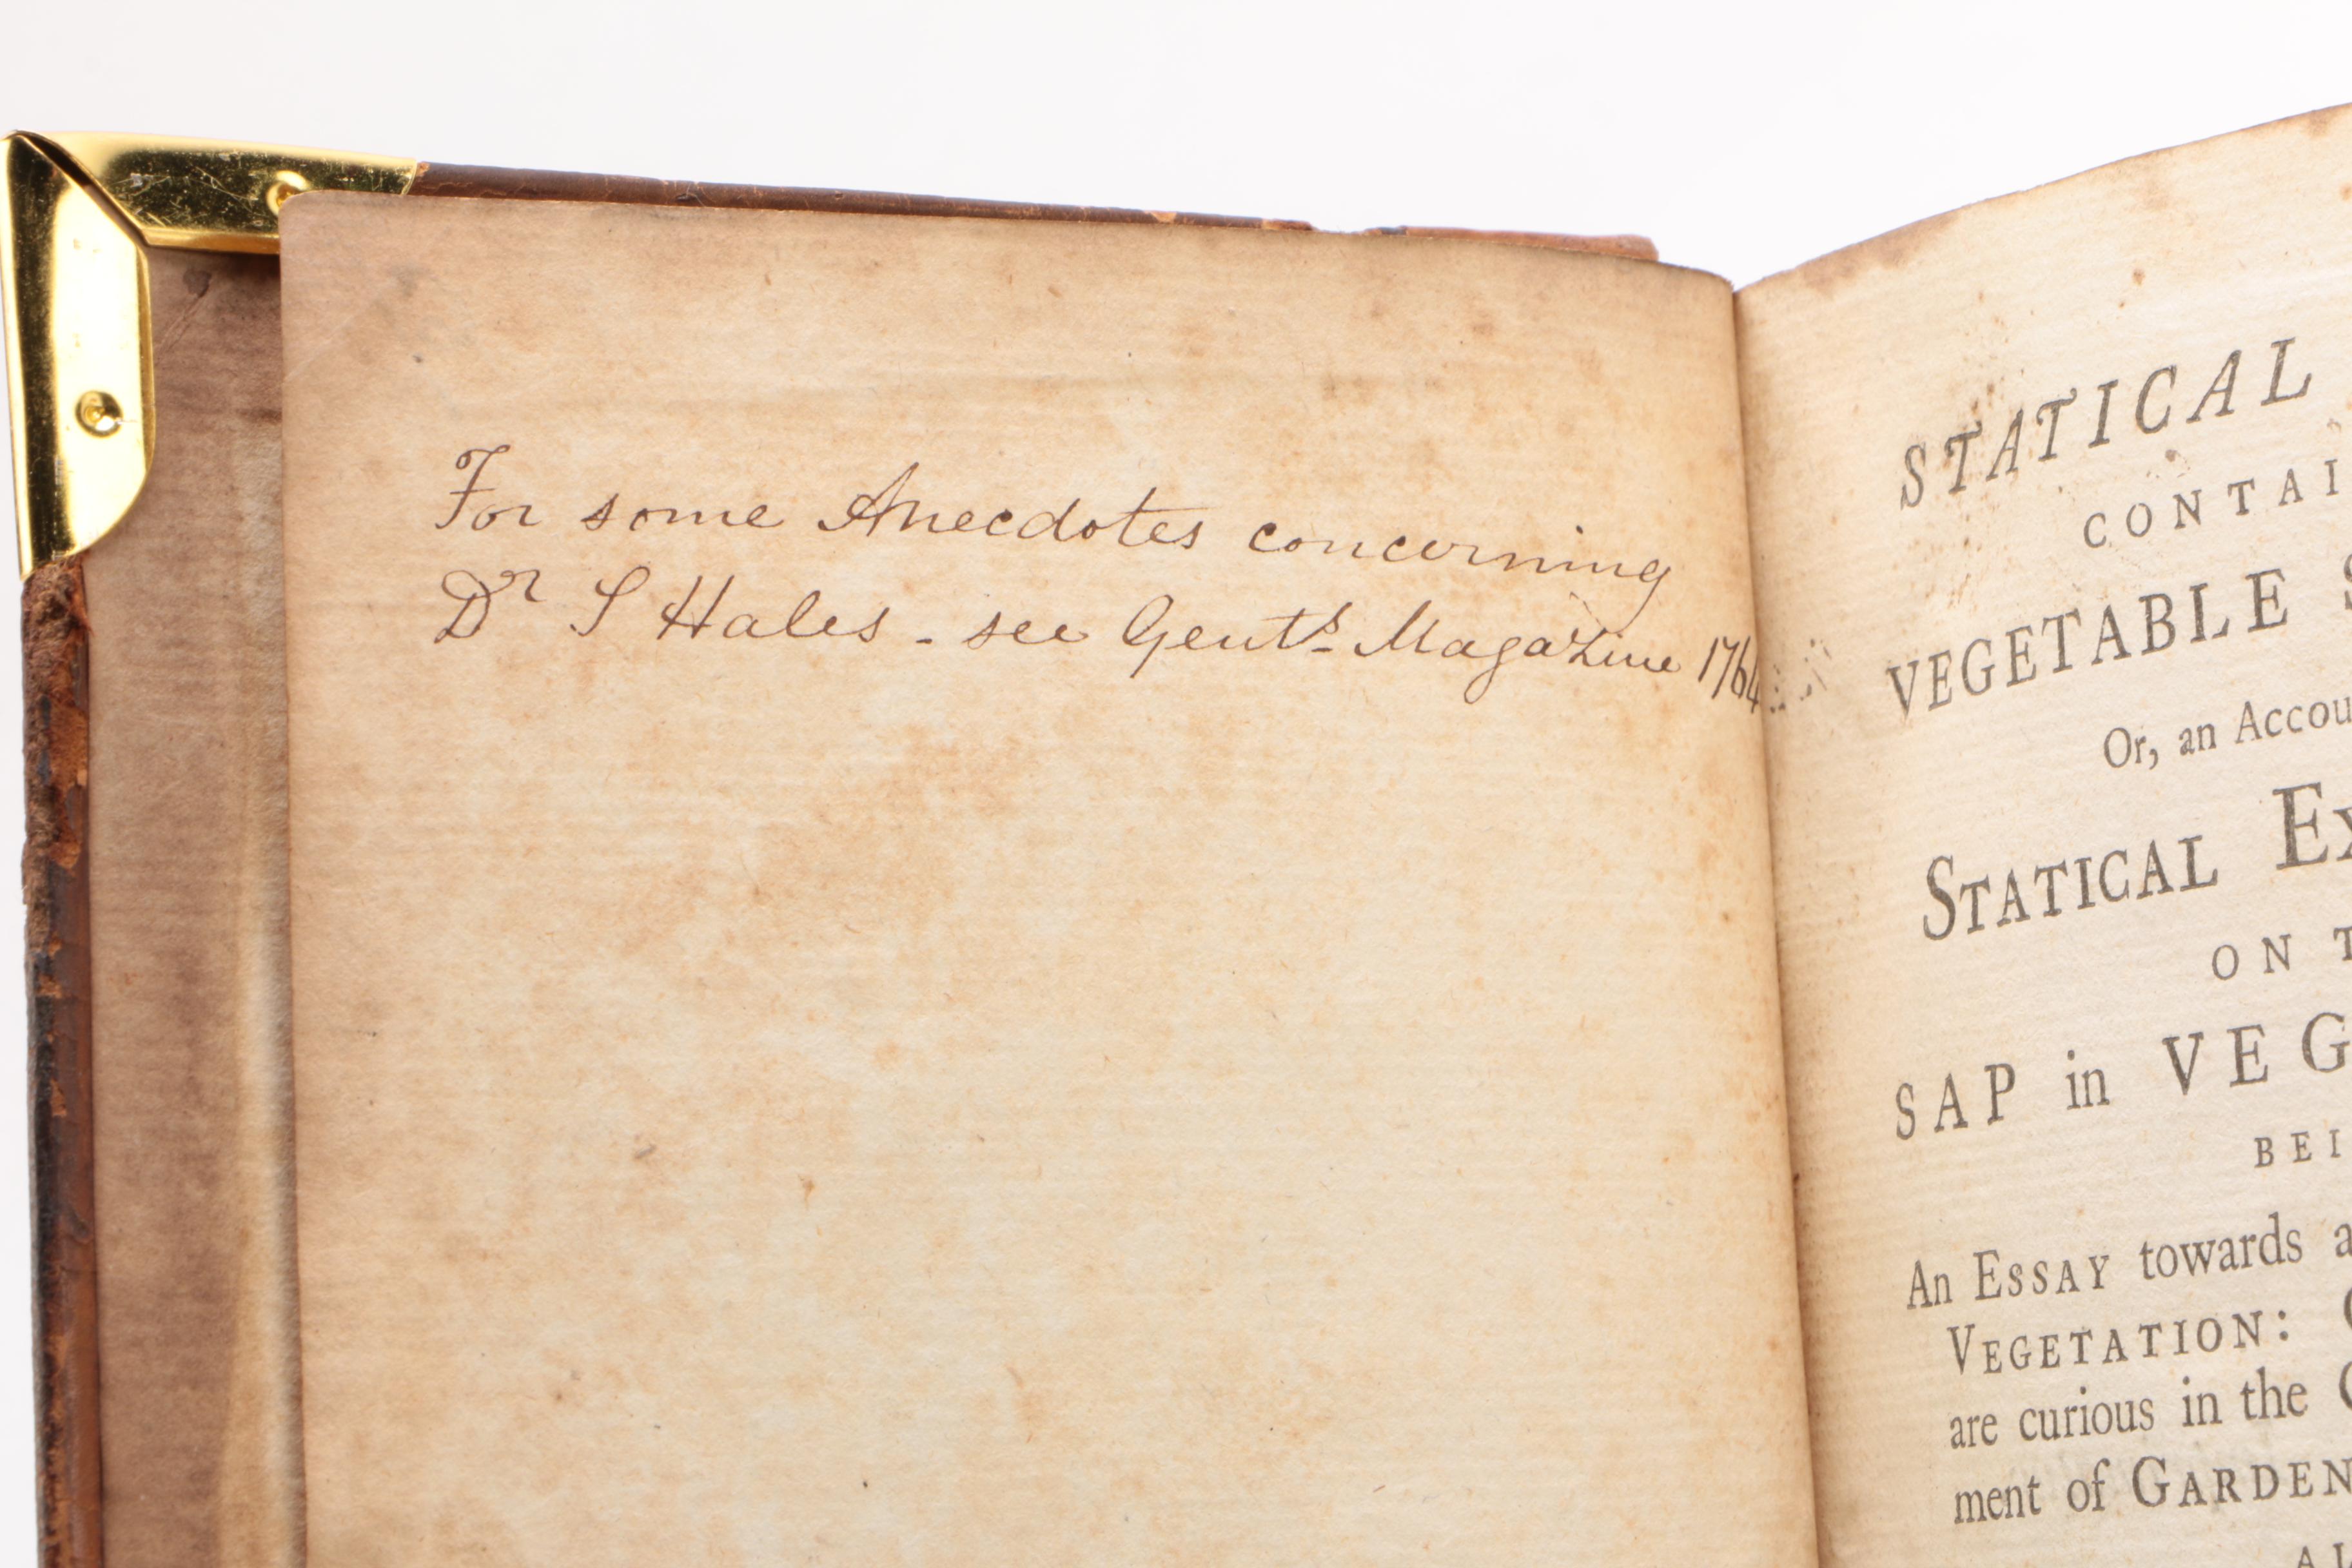 For some Anecdotes concerning
Dr S Hales - see Gents. Magazine 1764
STATICAL
CONTAI
VEGETABLE S
Or, an Accou
STATICAL EX
ON T
SAP in VEG
BEI
An ESSAY towards a
VEGETATION:
are curious in the
ment of GARDEN